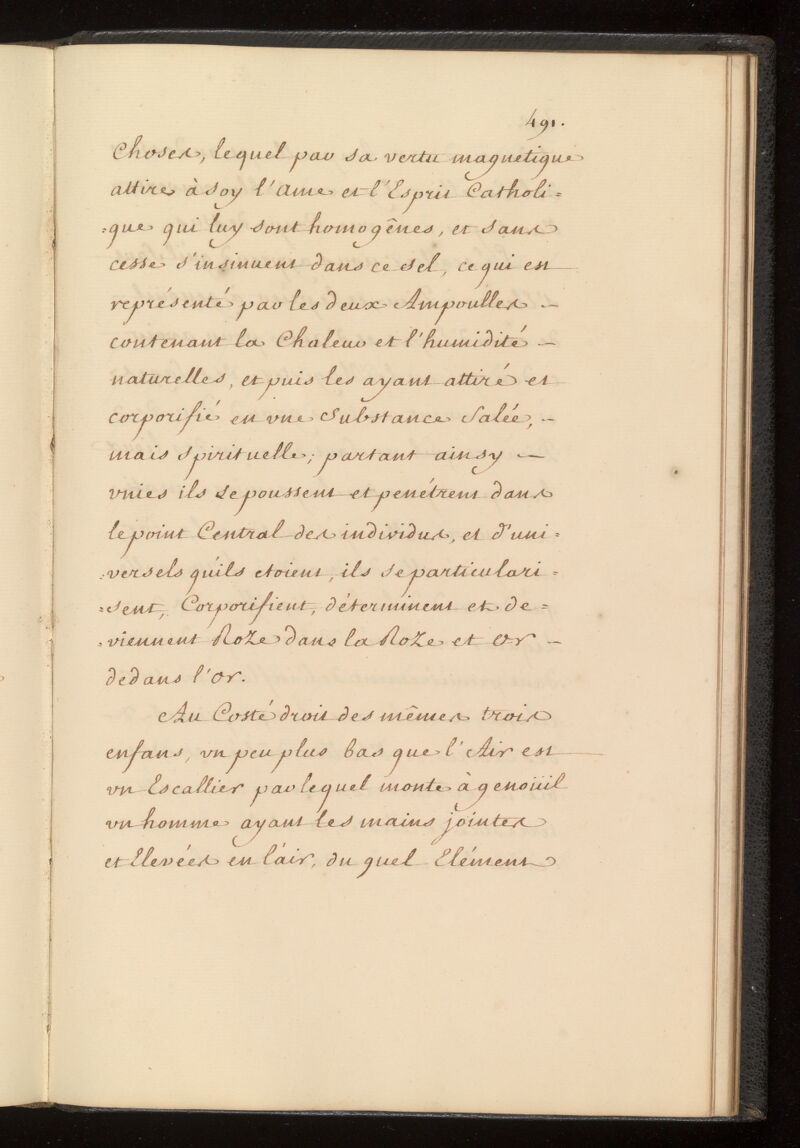 491.
Choses, lequel par sa vertu magnetique
attire à soy l'ame et l'Esprit Catholi=
=que qui luy sont homogênes, et sans
cesse s'insinuent dans ce sel, ce qui est
représenté par les deux Ampoulles —
contenant la Chaleur et l'humidité —
naturelles, et puis les ayant attiré et
corporifié en vne Substance Salée, —
mais spirituelle; partant ainsy —
vnies ils se poussent et penétrent dans
le point Central des individus, et d'uni=
=versels qu'ils etoient, ils se particulari=
=sent, Corporifient, déterminent et de=
=viennent Roze dans la Roze et Or —
dedans l'or.
Au Costé droit des mêmes trois
enfans, vn peu plus bas que l'Air est
vn Escallier par lequel monte à genoüil
vn homme ayant les mains jointes
et Elevées en l'air, du quel Elément